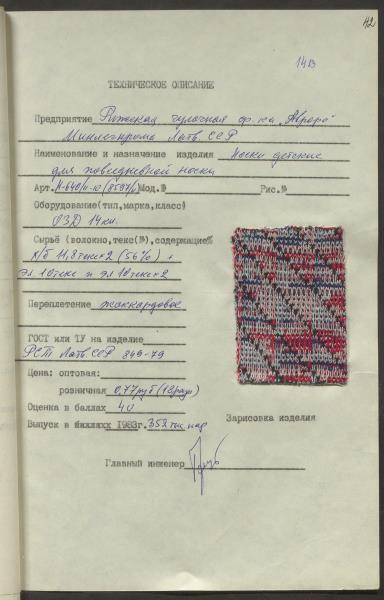 42
14В
ТЕХНИЧЕСКОЕ ОПИСАНИЕ
Предприятие Рижская чулочная ф-ка „Аврора"
Минлегпрома Латв. ССР
Наименование и назначение изделия Носки детские
для повседневной носки
Арт. Мод.№ Рис.№
Оборудование(тип,марка,класс)
ОЗД 14кл.
Сырьё (волокно,текс(№),содержание%
х/б 11,8текс×2 (56%) +
эл. 10текс и эл 10текс×2
Переплетение жаккардовое
ГОСТ или ТУ на изделие
РСТ Латв.ССР 349-79
Цена: оптовая:
розничная 0,77руб
Оценка в баллах 40
Выпуск в 1983г. 352 тыс. пар
Зарисовка изделия
Главный инженер